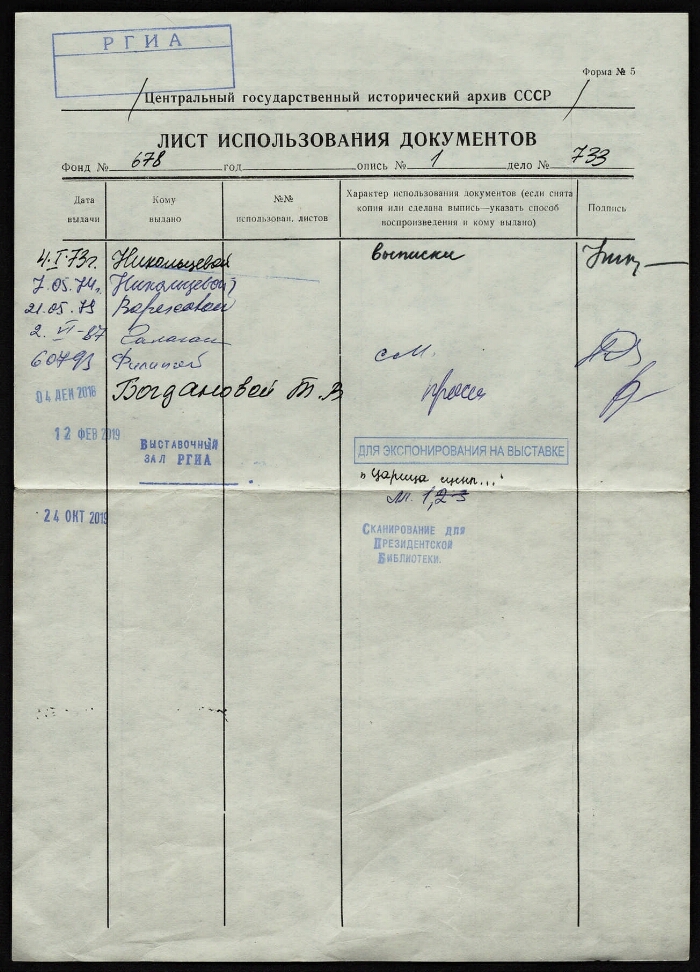 РГИА
Форма № 5
Центральный государственный исторический архив СССР
ЛИСТ ИСПОЛЬЗОВАНИЯ ДОКУМЕНТОВ
Фонд № 678 год опись № 1 дело № 733
Дата выдачи
Кому выдано
№№ использован. листов
Характер использования документов (если снята
копия или сделана выпись—указать способ
воспроизведения и кому выдано)
Подпись
4.I.73г. Никольцевой выписки
7.05.74г. Никольцевой
21.05.79
2. VI-87
60793 см.
04 ДЕК 2018 Богдановой Т.В просм
12 ФЕВ 2019
ВЫСТАВОЧНЫЙ
ЗАЛ РГИА
ДЛЯ ЭКСПОНИРОВАНИЯ НА ВЫСТАВКЕ
"Царица
1,2-3
24 ОКТ 2019
СКАНИРОВАНИЕ ДЛЯ
ПРЕЗИДЕНТСКОЙ
БИБЛИОТЕКИ.